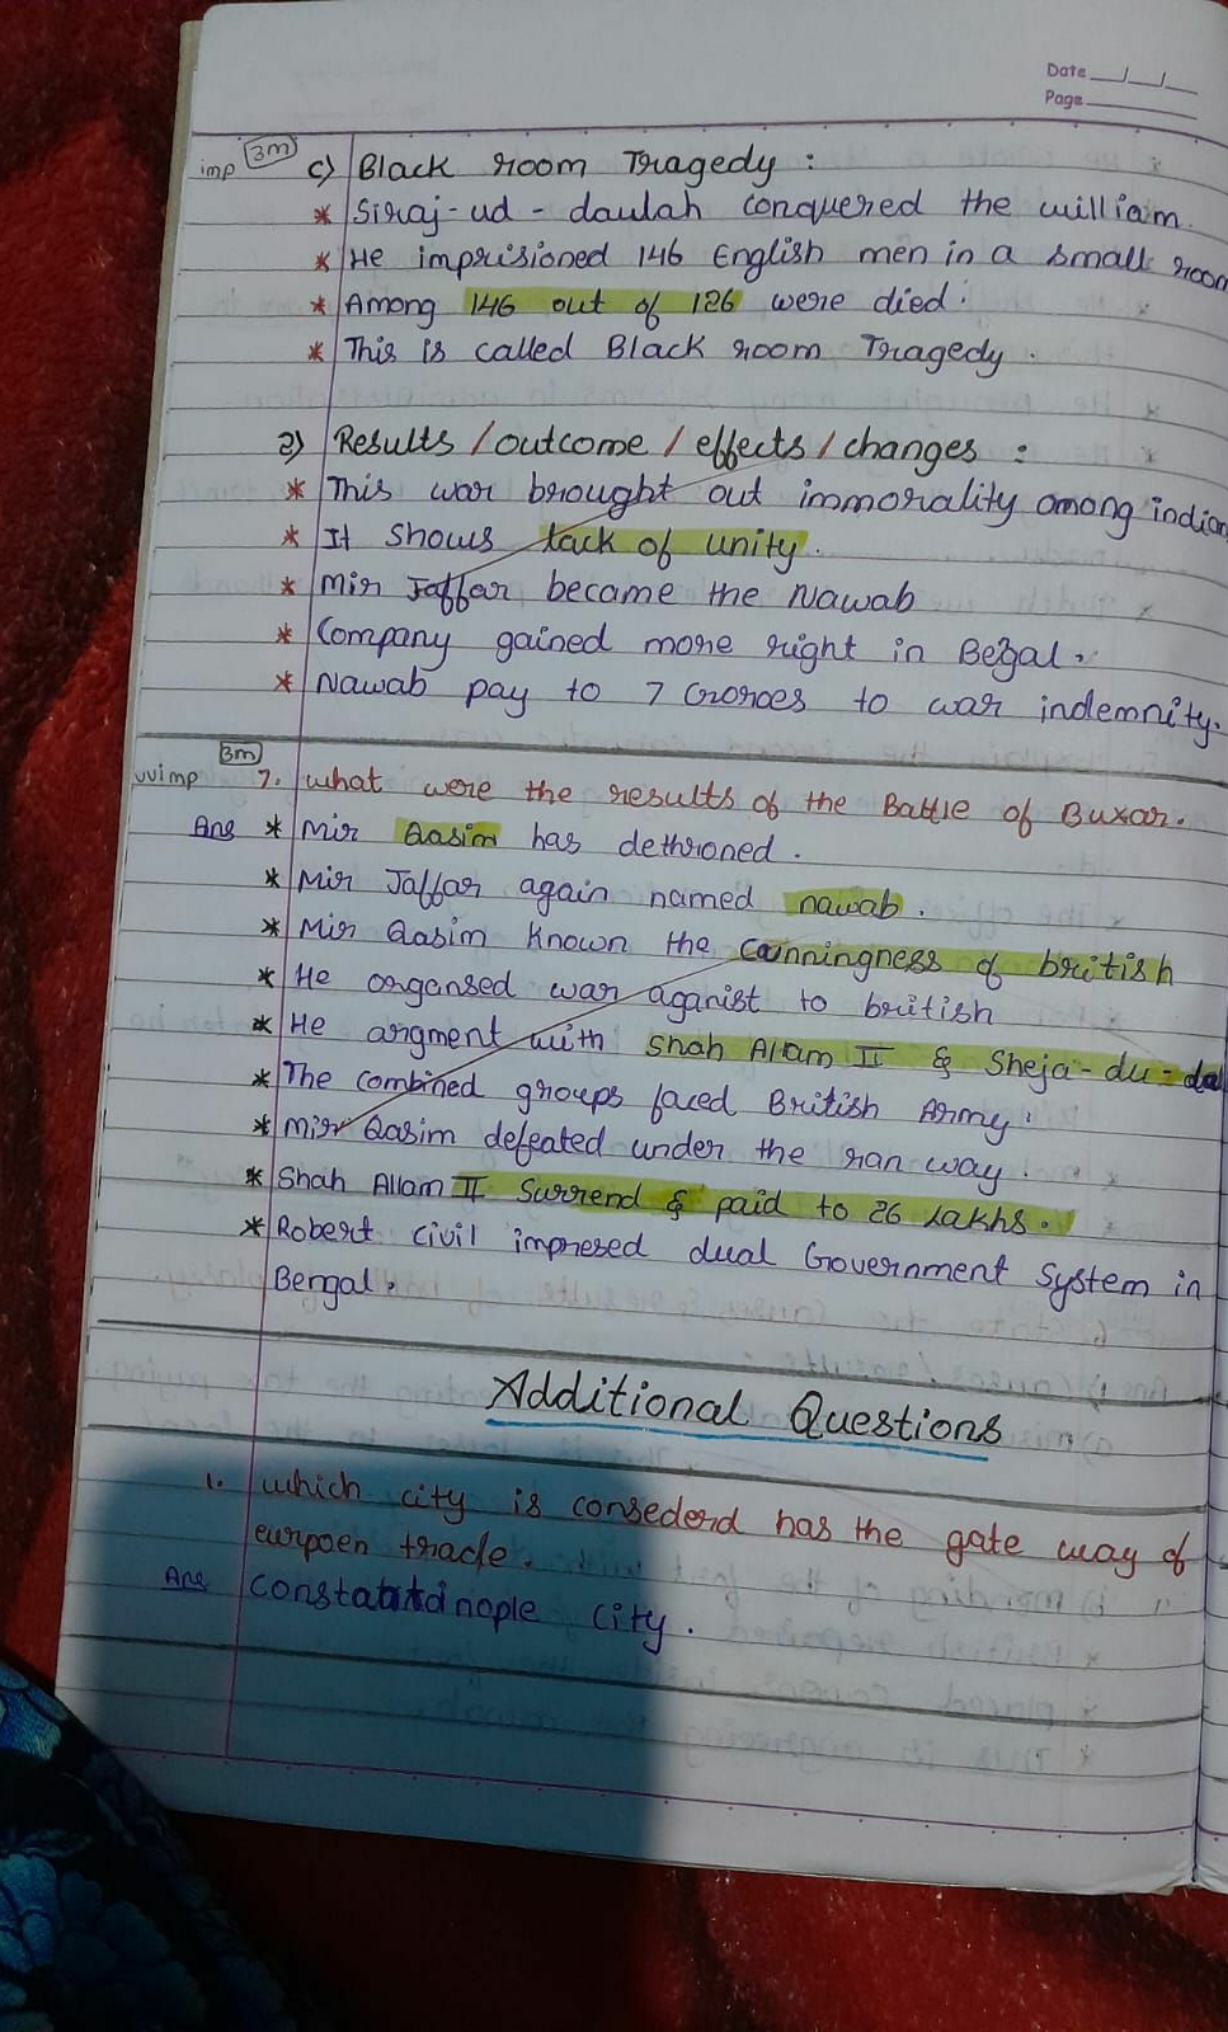 Date __/__/__
Page
imp 3m c) Black room Tragedy :
* Siraj-ud-daulah conquered the william.
* He imprisioned 146 English men in a small room
* Among 146 out of 126 were died.
* This is called Black room Tragedy.
2) Results / outcome / effects / changes :
* This war brought out immorality among indian
* It shows lack of unity.
* Mir Jaffar became the Nawab
* Company gained more right in Begal.
* Nawab pay to 7 crores to war indemnity.
3m
vvimp 7. what were the results of the Battle of Buxar.
Ans * Mir Qasim has dethroned.
* Mir Jaffar again named nawab.
* Mir Qasim known the cunningness of british
* He organsed war aganist to british
* He argment with Shah Allam II & Sheja-du-da
* The combined groups faced British Army.
* Mir Qasim defeated under the ran way.
* Shah Allam II Surrend & paid to 26 Lakhs.
* Robert civil impresed dual Government System in
Bengal.
Additional Questions
1. which city is consederd has the gate way of
eurpoen trade.
Ans city.